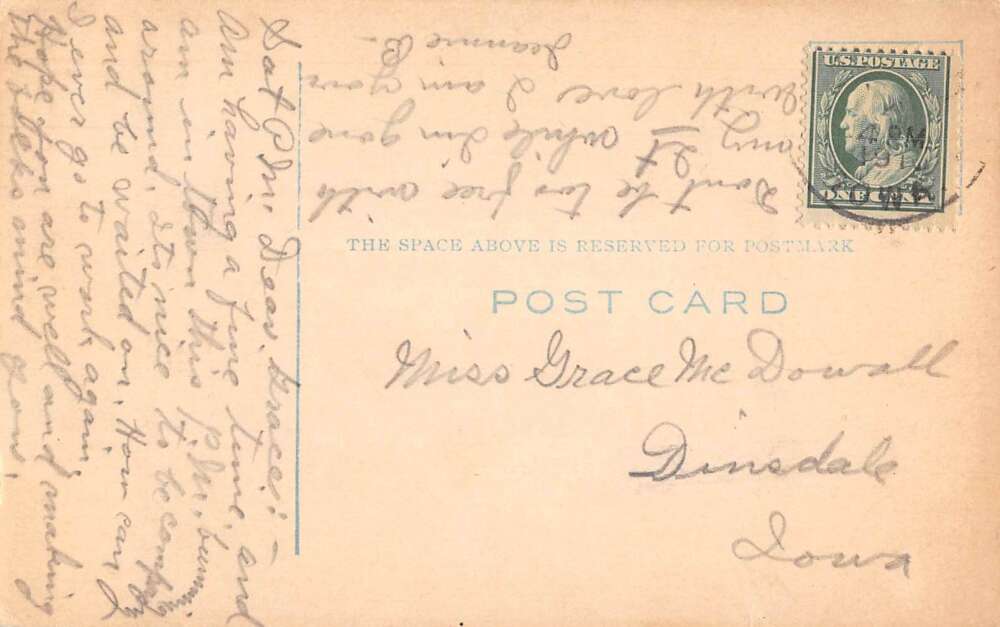 Sat P.M. Dear Grace:-
Am having a fine time, and
am in town this P.M. bumin
around. Its nice to be company
and be waited on. How can
I ever go to work again.
Hope you are well and making
the folks mind you.
Dont be too free with
any It while Im gone
With love I am your
Jeannie B-
U.S. POSTAGE
ONE CENT
4 PM
191
IOWA
THE SPACE ABOVE IS RESERVED FOR POSTMARK
POST CARD
Miss Grace McDowall
Dinsdale
Iowa